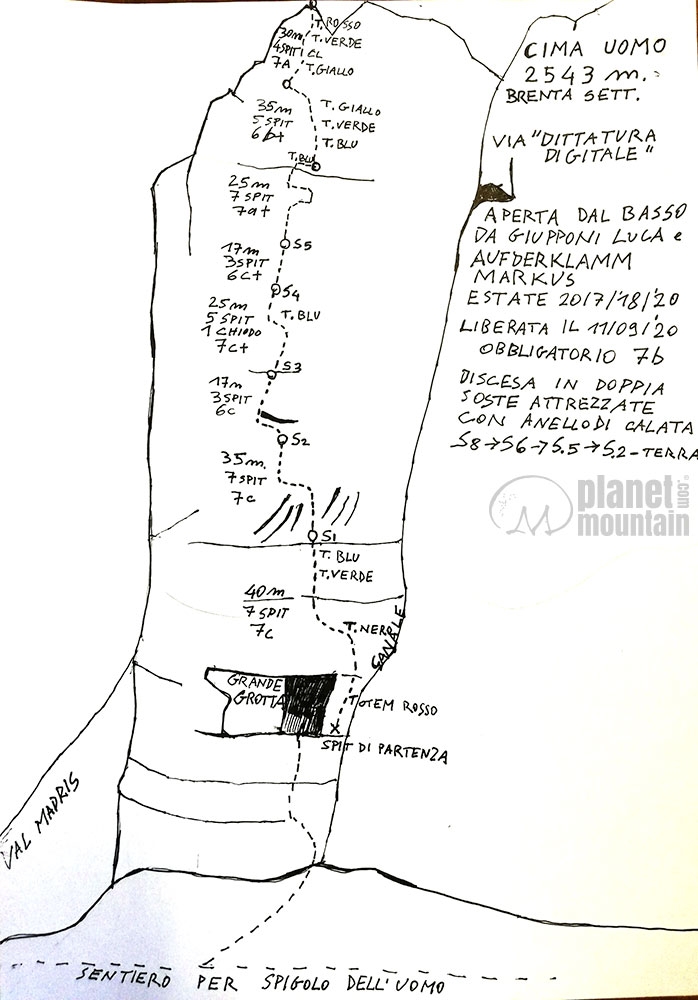 CIMA UOMO
2543 m.
BRENTA SETT.
VIA "DITTATURA
DIGITALE"
APERTA DAL BASSO
DA GIUPPONI LUCA e
AUFDERKLAMM
MARKUS
ESTATE 2017/18/'20
LIBERATA IL 11/09/'20
OBBLIGATORIO 7b
DISCESA IN DOPPIA
SOSTE ATTREZZATE
CON ANELLO DI CALATA
S8→S6→S.5→S.2-TERRA
planet
mountain
.com
T. ROSSO
T. VERDE
T. GIALLO
30m
4 SPIT 1 CL
7A
35m
5 SPIT
6b+
T. GIALLO
T. VERDE
T. BLU
T. BLU
25m
7 SPIT
7a+
S5
17m
3 SPIT
6c+
S4
25m
5 SPIT
1 CHIODO
7c+
T. BLU
S3
17m
3 SPIT
6c
S2
35m.
7 SPIT
7c
S1
T. BLU
T. VERDE
40m
7 SPIT
7c
T. NERO
CANALE
GRANDE
GROTTA
TOTEM ROSSO
SPIT DI PARTENZA
VAL MADRIS
SENTIERO PER SPIGOLO DELL'UOMO